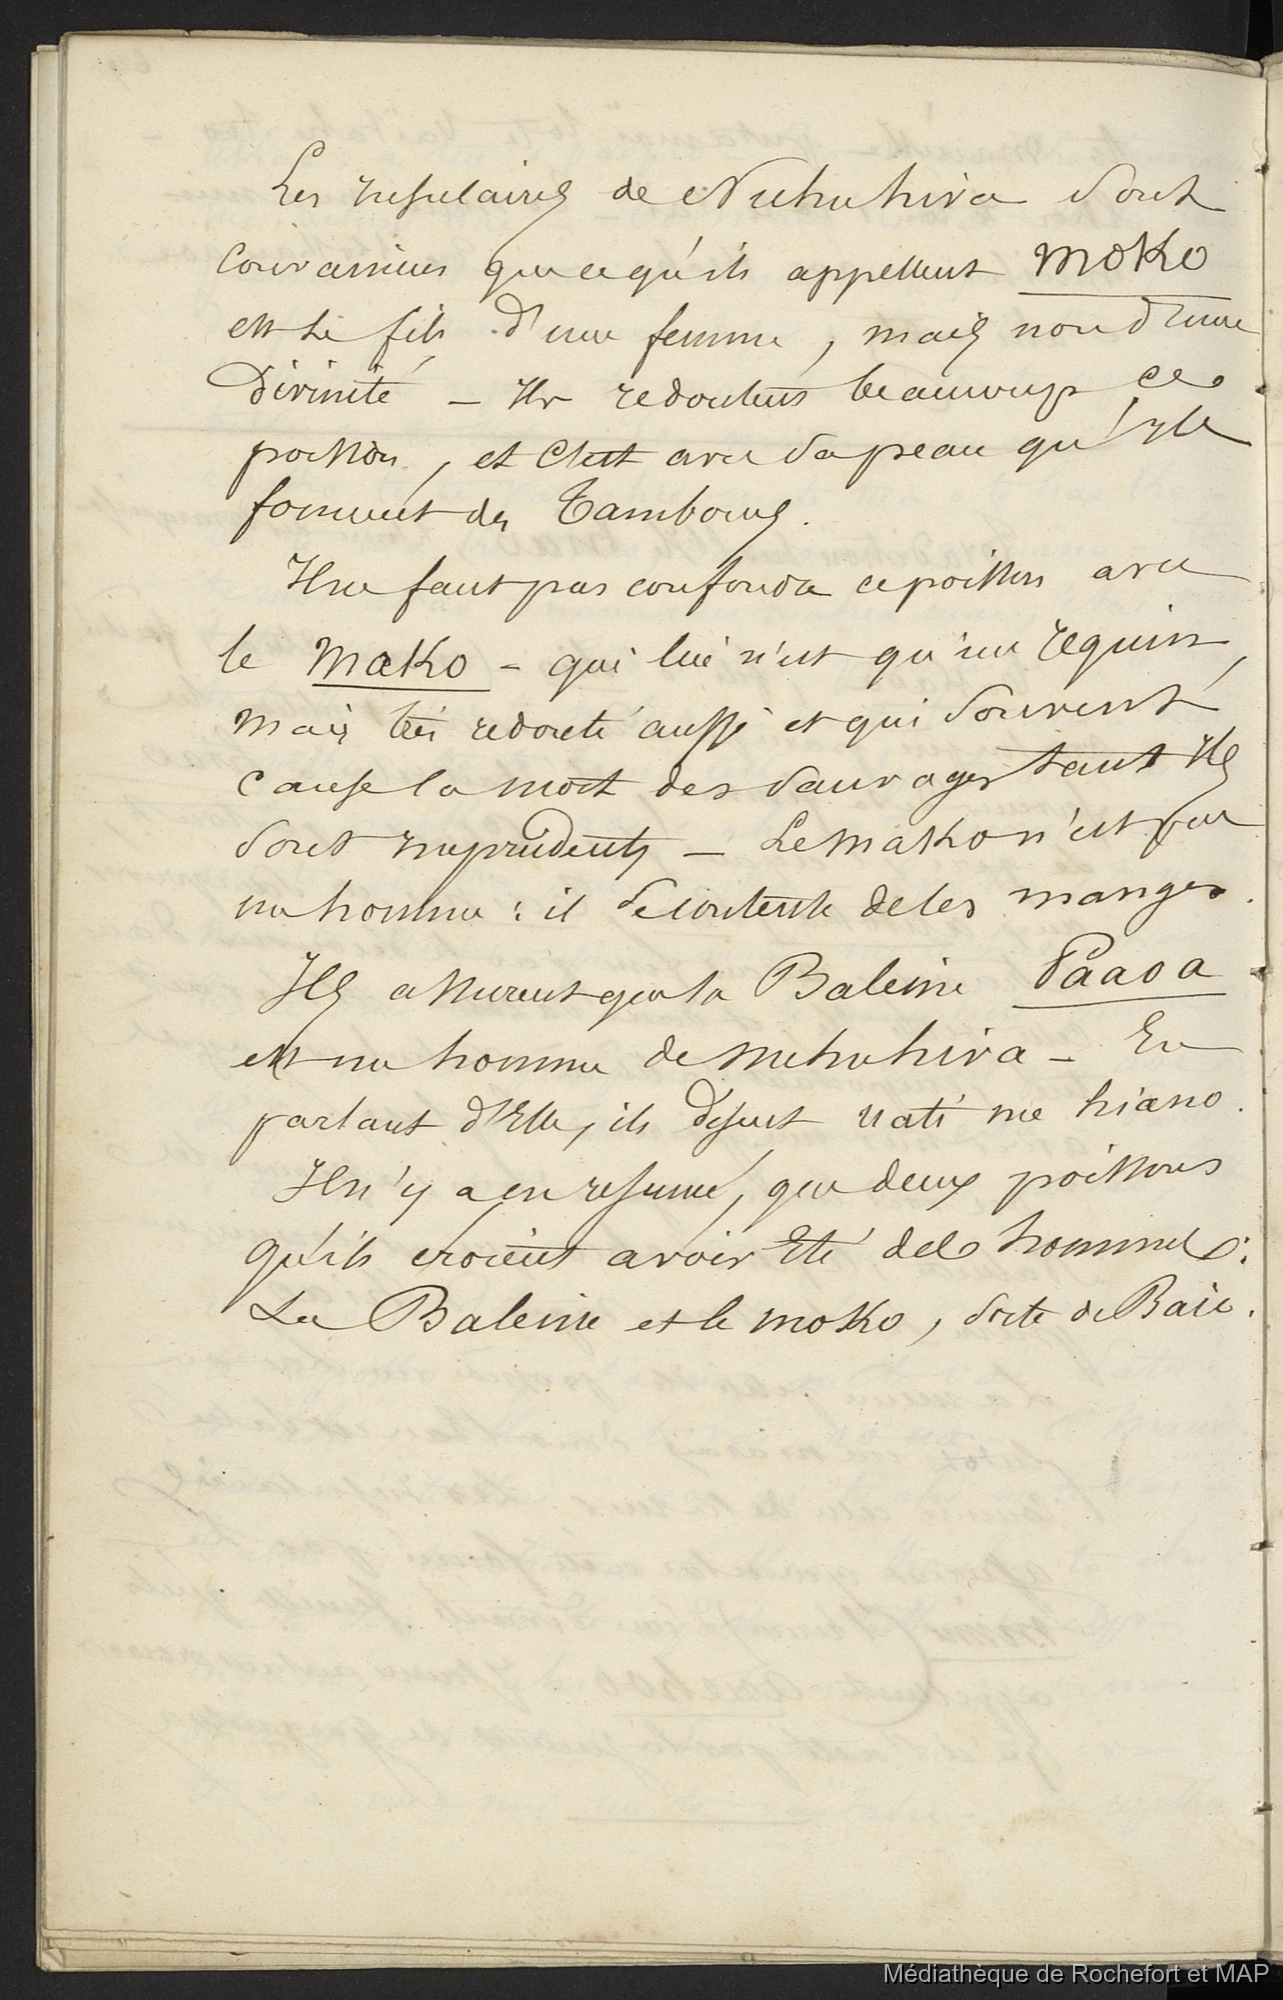 Les insulaires de Nuhuhiva sont
convaincus que ce qu'ils appellent moko
est le fils d'une femme, mais non d'une
Divinité – Ils redoutent beaucoup ce
poisson, et c'est avec sa peau qu'ils
forment des Tambours.
Il ne faut pas confondre ce poisson avec
le mako – qui lui n'est qu'un requin,
mais très redouté aussi et qui souvent
cause la mort des sauvages tant ils
sont imprudents – Le mako n'est pas
un homme : il se contente de les manger.
Ils assurent que la Baleine Paaoa
est un homme de nuhuhiva – En
parlant d'Elle, ils disent uati me hiano.
Il n'y a en resumé, que deux poissons
qu'ils croient avoir Eté des hommes :
La Baleine et le moko, sorte de Raie.
Médiathèque de Rochefort et MAP